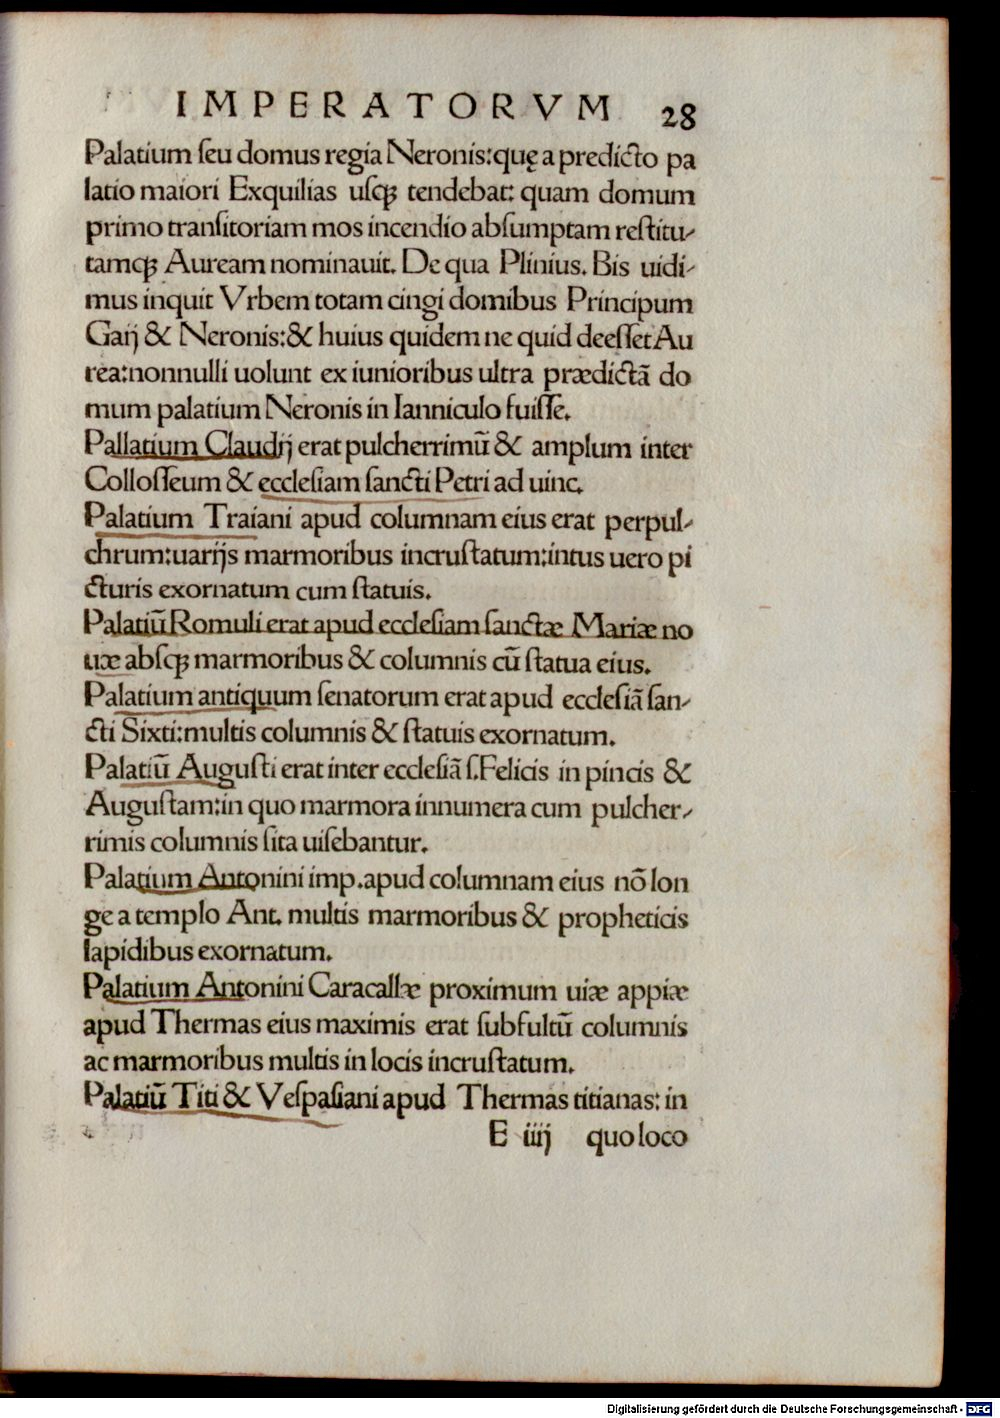 IMPERATORVM 28
Palatium ſeu domus regia Neronis:quę a predicto pa
latio maiori Exquilias uſqꝫ tendebat: quam domum
primo tranſitoriam mos incendio abſumptam reſtitu-
tamqꝫ Auream nominauit. De qua Plinius. Bis uidi-
mus inquit Vrbem totam cingi domibus Principum
Gaij & Neronis:& huius quidem ne quid deeſſet Au
rea:nonnulli uolunt ex iunioribus ultra prædictã do
mum palatium Neronis in Ianniculo fuiſſe.
Pallatium Claudij erat pulcherrimũ & amplum inter
Colloſſeum & eccleſiam ſancti Petri ad uinc.
Palatium Traiani apud columnam eius erat perpul-
chrum:uarijs marmoribus incruſtatum:intus uero pi
cturis exornatum cum ſtatuis.
Palatiũ Romuli erat apud eccleſiam ſanctæ Mariæ no
uæ abſqꝫ marmoribus & columnis cũ ſtatua eius.
Palatium antiquum ſenatorum erat apud eccleſiã ſan-
cti Sixti:multis columnis & ſtatuis exornatum.
Palatiũ Auguſti erat inter eccleſiã ſ.Felicis in pincis &
Auguſtam:in quo marmora innumera cum pulcher-
rimis columnis ſita uiſebantur.
Palatium Antonini imp.apud columnam eius nõ lon
ge a templo Ant. multis marmoribus & propheticis
lapidibus exornatum.
Palatium Antonini Caracallæ proximum uiæ appiæ
apud Thermas eius maximis erat ſubfultũ columnis
ac marmoribus multis in locis incruſtatum.
Palatiũ Titi & Veſpaſiani apud Thermas titianas: in
E iiij quo loco
Digitalisierung gefördert durch die Deutsche Forschungsgemeinschaft - DFG